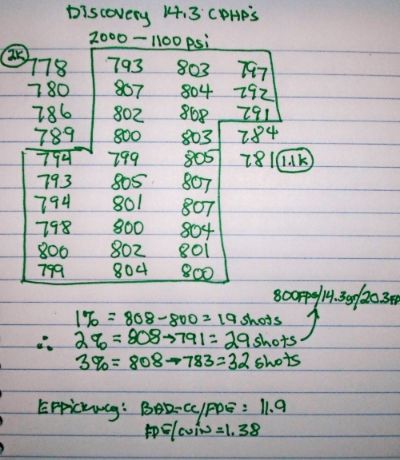 Discovery 14.3 CPHP's
2000 - 1100 psi
2K
778 793 803 797
780 807 804 792
786 802 808 791
789 800 803 784
794 799 805 781 1.1K
793 805 807
794 801 807
798 800 804
800 802 801
799 804 800
800FPS/14.3gr/20.3FP
1% = 808-800 = 19 shots
∴ 2% = 808→791 = 29 shots
3% = 808→783 = 32 shots
Efficiency: BAD-CC/FPE = 11.9
FPE/cuin = 1.38